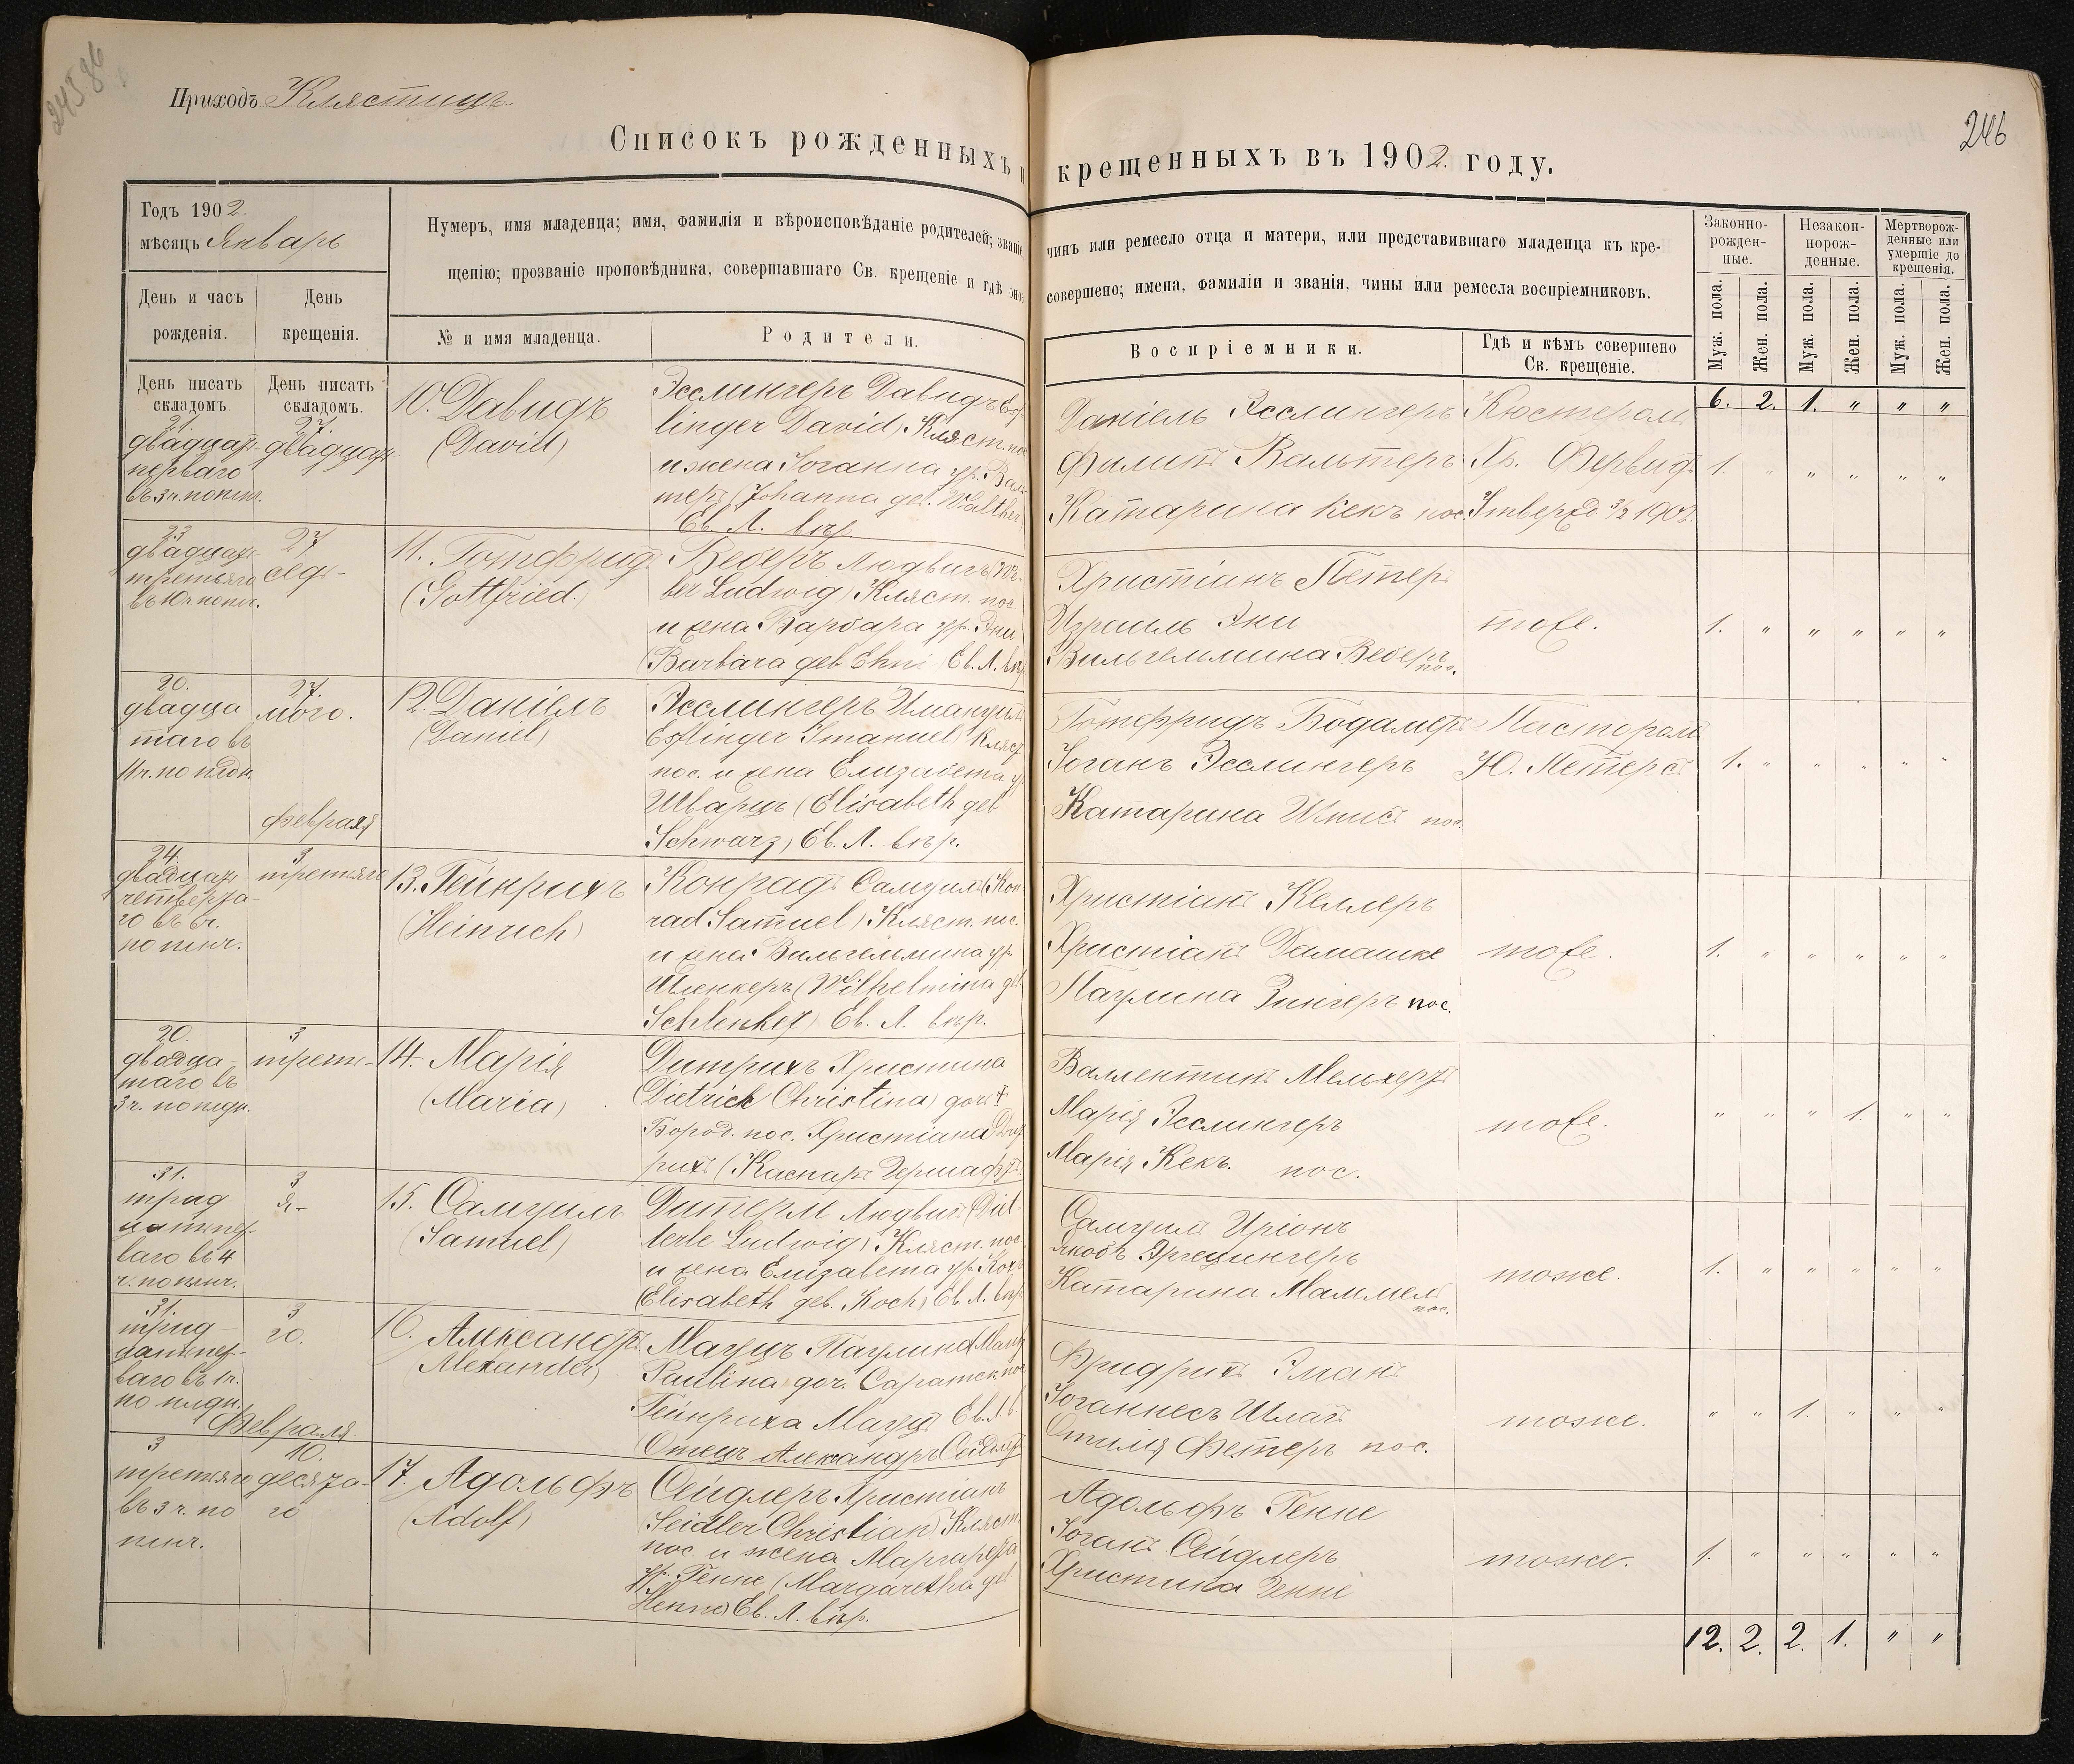 246
Приходъ Клястицъ.
Списокъ рожденныхъ и крещенныхъ въ 1902. году.
Годъ 1902.
мѣсяцъ Январь
День и часъ рожденія.
День крещенія.
Нумеръ, имя младенца; имя, фамилія и вѣроисповѣданіе родителей; званіе, чинъ или ремесло отца и матери, или представившаго младенца къ кре-
щенію; прозваніе проповѣдника, совершавшаго Св. крещеніе и гдѣ оное совершено; имена, фамиліи и званія, чины или ремесла воспріемниковъ.
№ и имя младенца.
Родители.
Воспріемники.
Гдѣ и кѣмъ совершено
Св. крещеніе.
Законно-
рожден-
ные.
Незакон-
норож-
денные.
Мертворож-
денные или
умершіе до
крещенія.
Муж. пола.
Жен. пола.
Муж. пола.
Жен. пола.
Муж. пола.
Жен. пола.
День писать
складомъ.
День писать
складомъ.
6. 2. 1. " " "
21.
двадцать
перваго
въ 3 ч. попол.
27.
двадцать-
10. Давидъ
(David)
Эсслингеръ Давидъ Eß-
linger David) Кляст. по
и жена Іоганна ур. Валь
теръ (Johanna geb. Walther
Ев. Л. вѣр.
Даніель Эсслингеръ
Филипъ Вальтеръ
Катарина Кекъ пос.
Кюстеромъ
Хр. Фервидъ
Утвержд 3/2 1902.
1. " " " " "
23
двадцать
третьяго
въ 10 ч. попол.
27
седь-
11. Готфридъ
(Gottfried.)
Веберъ Людвигъ (We-
ber Ludwig) Кляст. пос.
и жена Барбара ур. Эни
(Barbara geb Ehni Ев. Л. вѣр
Христіанъ Петеръ
Израиль Эни
Вильгельмина Веберъ
пос.
тоже.
1. " " " " "
20.
двадца-
таго въ
11 ч. по плдн.
27.
мого.
12. Даніелъ
(Daniel)
Эсслингеръ Имануилъ
Eßlinger Imanuel) Кляст
пос. и жена Елизабета ур
Шварцъ (Elisabeth geb
Schwarz) Ев. Л. вѣр.
Готфридъ Бодамеръ
Іоганъ Эсслингеръ
Катарина Шписъ пос.
Пасторомъ
Ю. Петерсъ
1. " " " " "
февраля
24.
двадцать
четверта
го въ 6 ч.
по плнч.
3
третьяго
13. Гейнрихъ
(Heinrich)
Конрадъ Самуилъ (Kon-
rad Samuel) Кляст. пос.
и жена Вильгельмина ур.
Шленкеръ (Wilhelmina geb
Schlenker) Ев. Л. вѣр.
Христіанъ Келлеръ
Христіанъ Дамашке
Паулина Зингеръ пос.
тоже.
1. " " " " "
20.
двадца-
таго въ
3 ч. по плдн.
3
треть-
14. Марія
(Maria)
Дитрихъ Христина
Dietrich Christina) дочь †
Бород. пос. Христіана Дит
рихъ
Валлентинъ Мельхертъ
Марія Эсслингеръ
Марія Кекъ. пос.
тоже.
" " " 1. " "
31.
трид
цать пер-
ваго въ 4
ч. по плнч.
3
я-
15. Самуилъ
(Samuel)
Дитерле Людвигъ (Diet
terle Ludwig) Кляст. пос.
и жена Елизавета ур. Кохъ
(Elisabeth geb. Koch) Ев. Л. вѣр
Самуилъ Иріонъ
Якобъ
Катарина Маммель
пос.
тоже.
1. " " " " "
31.
трид-
цать пер-
ваго въ 1 ч.
по плдн.
3
го.
16. Александръ
Alexander)
Мауцъ Паулина (Mauz
Paulina) доч. Саратск. пос
Гейнриха Мауцъ Ев. Л. в.
(Отецъ Александръ Сейдлеръ
Фридрихъ
Іоганнесъ Шлатъ
Отилія Фетеръ пос.
тоже.
" " 1. " " "
Февраля.
3
третьяго
въ 3 ч. по
плнч.
10.
десята-
го
17. Адольфъ
(Adolf)
Сейдлеръ Христіанъ
(Seidler Christian) Кляст
пос. и жена Маргарета
ур. Генне (Margaretha geb.
Henne) Ев. Л. вѣр.
Адольфъ Генне
Іоганъ Сейдлеръ
Христина Генне
тоже.
1. " " " " "
12. 2. 2. 1. " "